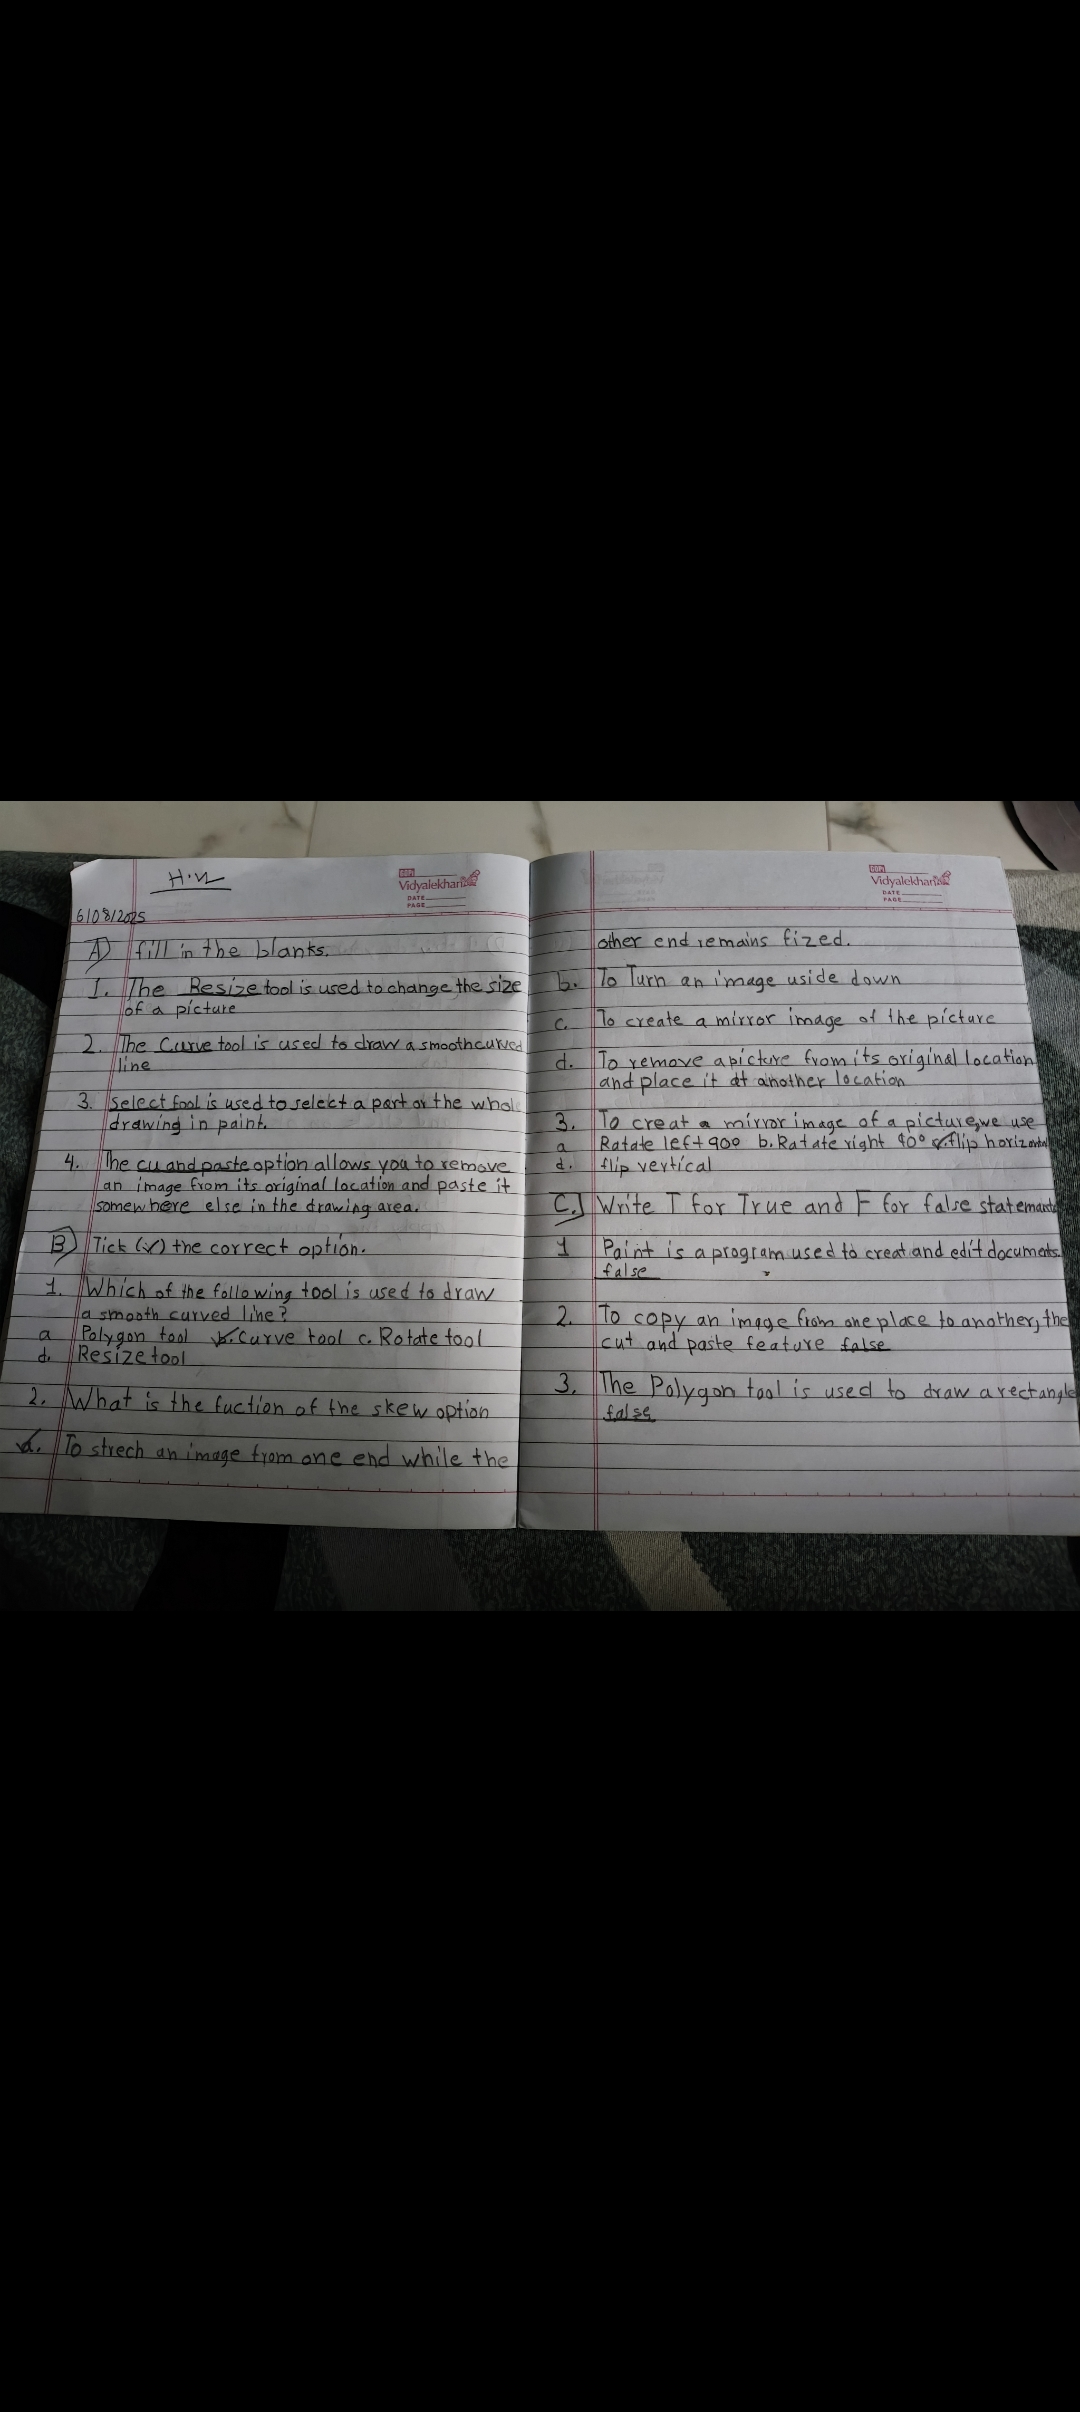 H.W
Vidyalekhan
DATE
PAGE
6/08/2025
A) fill in the blanks.
1. The Resize tool is used to change the size
of a picture
2. The Curve tool is used to draw a smooth curved
line
3. Select tool is used to select a part or the whole
drawing in paint.
4. The cu and paste option allows you to remove
an image from its original location and paste it
somewhere else in the drawing area.
B) Tick (✓) the correct option.
1. Which of the following tool is used to draw
a smooth curved line?
a Polygon tool ✓b. Curve tool c. Rotate tool
d. Resize tool
2. What is the fuction of the skew option
✓a. To strech an image from one end while the
Vidyalekhan
DATE
PAGE
other end remains fized.
b. To Turn an image uside down
c. To create a mirror image of the picture
d. To remove a picture from its original location
and place it at another location
3. To creat a mirror image of a picture, we use
a Ratate left 90° b. Ratate right 90° ✓c. flip horizontal
d. flip vertical
C.) Write T for True and F for false statemants
1 Paint is a program used to creat and edit documents.
false
2. To copy an image from one place to another, the
cut and paste feature false
3. The Polygon tool is used to draw a rectangle
false